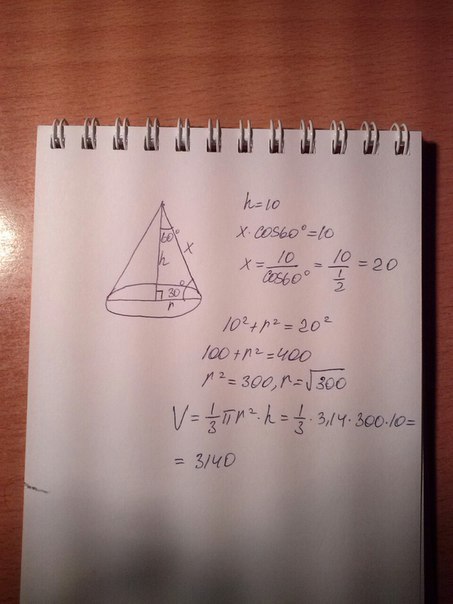 60°
x
h
30°
r
h=10
x·cos60°=10
x=10/cos60°=10/(1/2)=20
10²+r²=20²
100+r²=400
r²=300, r=√300
V=1/3πr²·h=1/3·3,14·300·10=
=3140